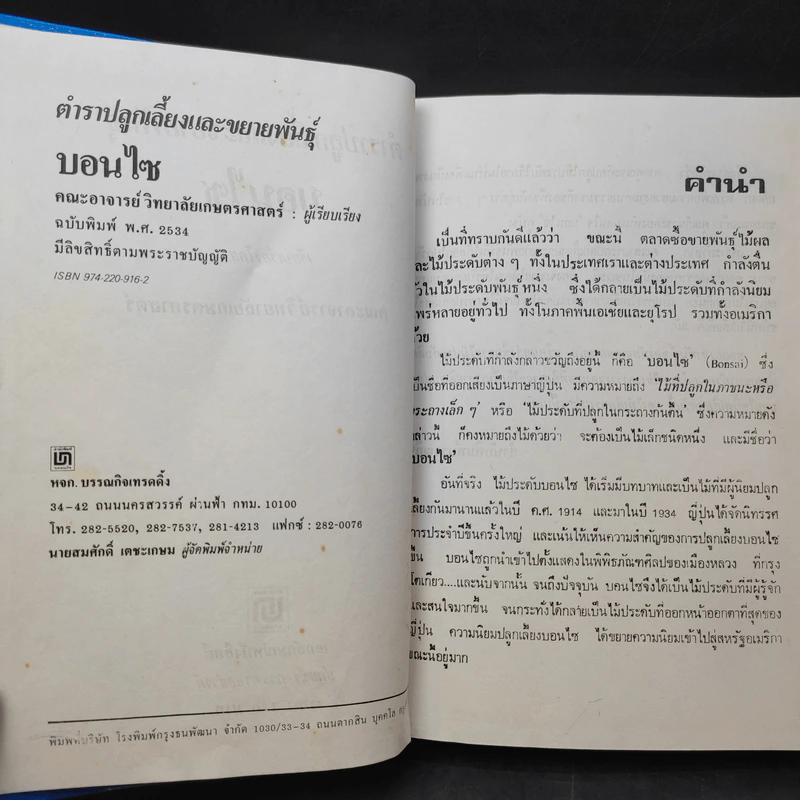 ตำราปลูกเลี้ยงและขยายพันธุ์
บอนไซ
คณะอาจารย์ วิทยาลัยเกษตรศาสตร์ : ผู้เรียบเรียง
ฉบับพิมพ์ พ.ศ. 2534
มีลิขสิทธิ์ตามพระราชบัญญัติ
ISBN 974-220-916-2
หจก. บรรณกิจเทรดดิ้ง
34-42 ถนนนครสวรรค์ ผ่านฟ้า กทม. 10100
โทร. 282-5520, 282-7537, 281-4213 แฟกซ์ : 282-0076
นายสมศักดิ์ เตชะเกษม ผู้จัดพิมพ์จำหน่าย
พิมพ์ที่บริษัท โรงพิมพ์กรุงธนพัฒนา จำกัด 1030/33-34 ถนนตากสิน บุคคโล
คำนำ
เป็นที่ทราบกันดีแล้วว่า ขณะนี้ ตลาดซื้อขายพันธุ์ไม้ผล
และไม้ประดับต่าง ๆ ทั้งในประเทศเราและต่างประเทศ กำลังตื่น
ตัวในไม้ประดับพันธุ์หนึ่ง ซึ่งได้กลายเป็นไม้ประดับที่กำลังนิยม
แพร่หลายอยู่ทั่วไป ทั้งในภาคพื้นเอเชียและยุโรป รวมทั้งอเมริกา
ด้วย
ไม้ประดับที่กำลังกล่าวขวัญถึงอยู่นี้ ก็คือ 'บอนไซ' (Bonsai) ซึ่ง
เป็นชื่อที่ออกเสียงเป็นภาษาญี่ปุ่น มีความหมายถึง 'ไม้ที่ปลูกในภาชนะหรือ
กระถางเล็ก ๆ' หรือ 'ไม้ประดับที่ปลูกในกระถางก้นตื้น' ซึ่งความหมายดัง
กล่าวนี้ ก็คงหมายถึงไม้ด้วยว่า จะต้องเป็นไม้เล็กชนิดหนึ่ง และมีชื่อว่า
'บอนไซ'
อันที่จริง ไม้ประดับบอนไซ ได้เริ่มมีบทบาทและเป็นไม้ที่มีผู้นิยมปลูก
เลี้ยงกันมานานแล้วในปี ค.ศ. 1914 และมาในปี 1934 ญี่ปุ่นได้จัดนิทรรศ
การประจำปีขึ้นครั้งใหญ่ และเน้นให้เห็นความสำคัญของการปลูกเลี้ยงบอนไซ
ขึ้น บอนไซถูกนำเข้าไปตั้งแสดงในพิพิธภัณฑ์ศิลปของเมืองหลวง ที่กรุง
โตเกียว....และนับจากนั้น จนถึงปัจจุบัน บอนไซจึงได้เป็นไม้ประดับที่มีผู้รู้จัก
และสนใจมากขึ้น จนกระทั่งได้กลายเป็นไม้ประดับที่ออกหน้าออกตาที่สุดของ
ญี่ปุ่น ความนิยมปลูกเลี้ยงบอนไซ ได้ขยายความนิยมเข้าไปสู่สหรัฐอเมริกา
ขณะนี้อยู่มาก